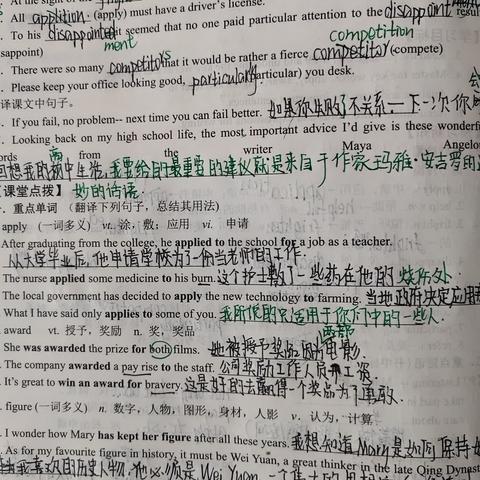 . All applition (apply) must have a driver's license.
. To his disappointed ment it seemed that no one paid particular attention to the disappoint
sappoint) competition
. There were so many competitors that it would be rather a fierce competitor (compete)
. Please keep your office looking good, particularly articular) you desk.
译课文中句子。
. If you fail, no problem-- next time you can fail better. 如果你失败了不关系,一下一次你
. Looking back on my high school life, the most important advice I'd give is these wonderful
ords from the writer Maya Angelo
回想我的初中生活,我要给的最重要的建议就是来自于作家玛雅·安吉罗的
高
【课堂点拨】 妙的话语.
一. 重点单词 (翻译下列句子,总结其用法)
apply (一词多义) vt. 涂,敷;应用 vi. 申请
After graduating from the college, he applied to the school for a job as a teacher.
从大学毕业后,他申请学校为了一份当老师的工作.
The nurse applied some medicine to his burn. 这个护士敷了一些药在他的烧伤处.
The local government has decided to apply the new technology to farming. 当地政府决定应用
What I have said only applies to some of you. 我所说的只适用于你们中的一些人.
. award vt. 授予,奖励 n. 奖,奖品
She was awarded the prize for both films. 她被授予奖品因 两部 电影.
The company awarded a pay rise to the staff. 公司奖励工作人员 工资.
. It's great to win an award for bravery. 这是好的去赢得一个奖品为了勇敢.
. figure (一词多义) n. 数字,人物,图形,身材,人影 v. 认为,计算
. I wonder how Mary has kept her figure after all these years. 我想知道Mary是如何保持
. As for my favourite figure in history, it must be Wei Yuan, a great thinker in the late Qing Dynast
我喜欢的历史人物,他必须是Wei Yuan, 一个